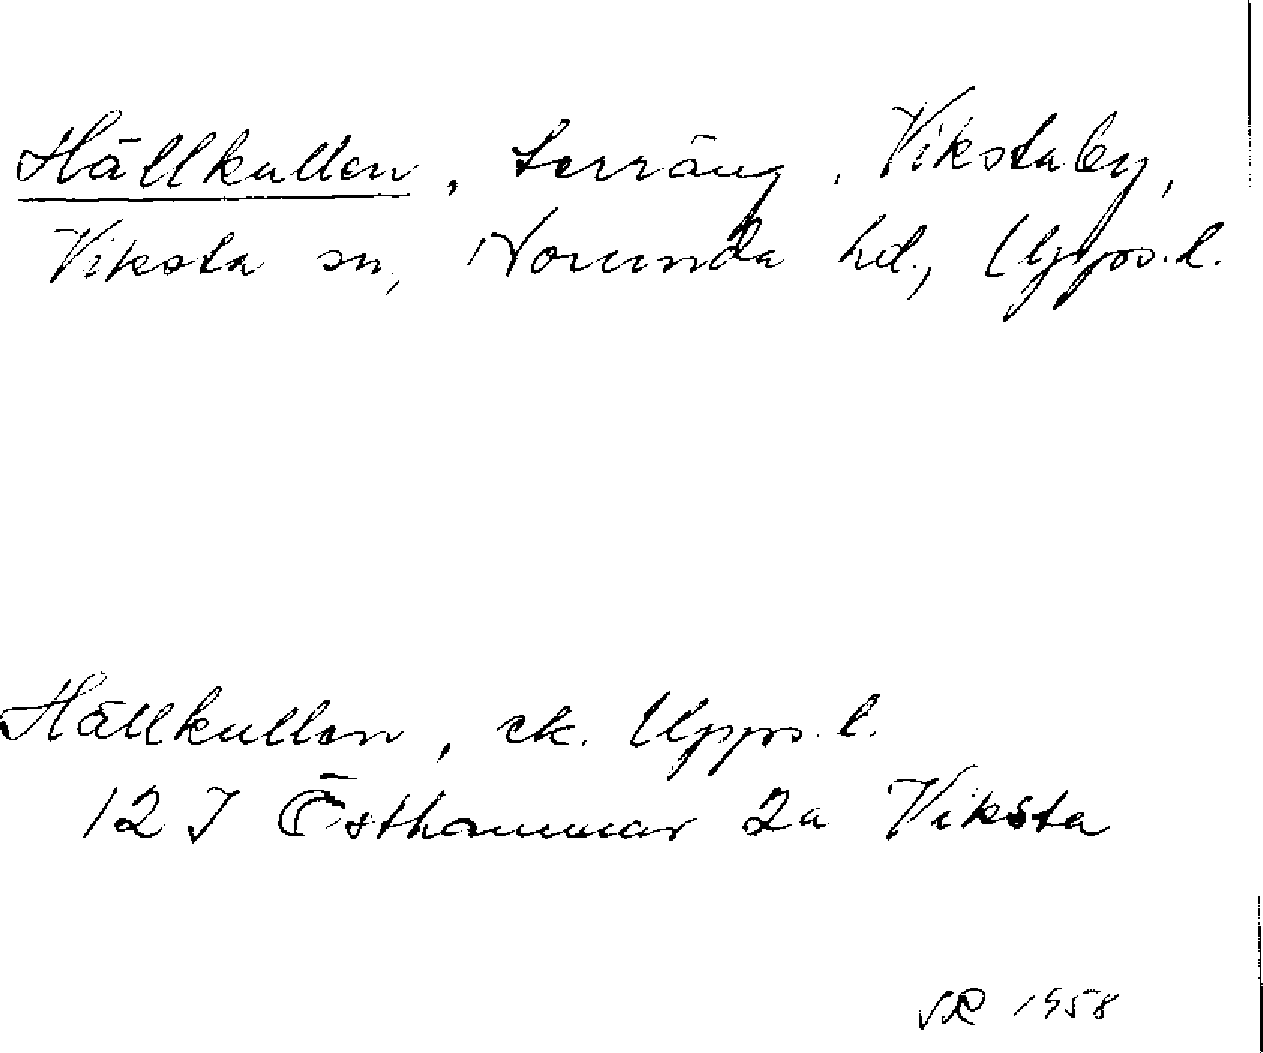 Hällkullen, terräng, Vikstaby,
Viksta sn, Norunda hd., Upps.l.
Hällkullen, ek. Upps.l.
12 I Östhammar 2a Viksta
1958